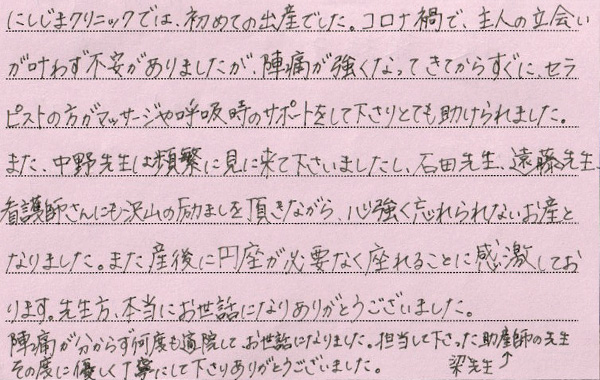 にしじまクリニックでは、初めての出産でした。コロナ禍で、主人の立会い
が叶わず不安がありましたが、陣痛が強くなってきてからすぐに、セラ
ピストの方がマッサージや呼吸時のサポートをして下さりとても助けられました。
また、中野先生は頻繁に見に来て下さいましたし、石田先生、遠藤先生、
看護師さんにも沢山の励ましを頂きながら、心強く忘れられないお産と
なりました。また産後に円座が必要なく座れることに感激してお
ります。先生方、本当にお世話になりありがとうございました。
陣痛が分からず何度も通院してお世話になりました。担当して下さった助産師の先生
その度に優しく丁寧にして下さりありがとうございました。 梁先生↗